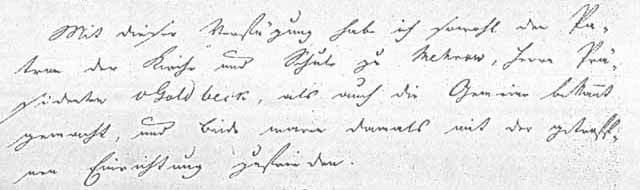 Mit dieser Verfügung habe ich sowohl den Pa-
tron der Kirche und Schule zu Mehrow, Herrn Prä-
sidenten vGoldbeck, als auch die Gemeine bekannt
gemacht, und beide waren damals mit der getroffe-
nen Einrichtung zufrieden.